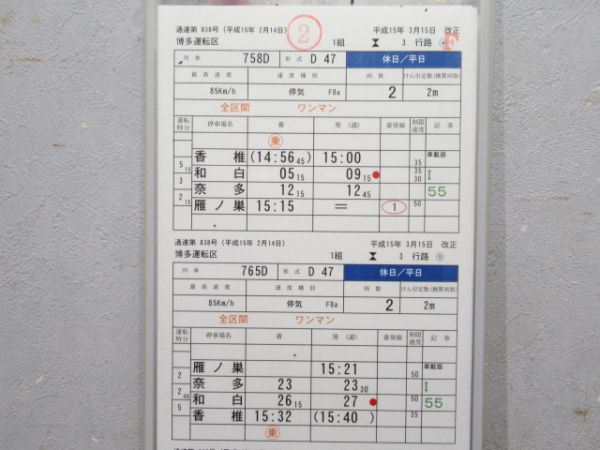 通達第 838号 (平成15年 2月14日)
②
平成15年 3月15日 改正
博多運転区
1組
3 行路
列車 758D 形式 D 47 休日/平日
最高速度 速度種別 両数 けん引定数(換算両数)
85Km/h 停気 F8a 2 2m
全区間 ワンマン
運転時分 停車場名 着 発(通) 着発線 制限速度 記事
乗
香椎 (14:56 45) 15:00 35 車載器
5 15 和白 05 15 09 15 ● 35 30 I
3 奈多 12 15 12 45 55
2 15 雁ノ巣 15:15 = 1 50
通達第 838号 (平成15年 2月14日)
平成15年 3月15日 改正
博多運転区
1組
3 行路 ⑤
列車 765D 形式 D 47 休日/平日
最高速度 速度種別 両数 けん引定数(換算両数)
85Km/h 停気 F8a 2 2m
全区間 ワンマン
運転時分 停車場名 着 発(通) 着発線 制限速度 記事
雁ノ巣 15:21 50 車載器
2 奈多 23 23 30 I
2 45 和白 26 15 27 ● 50 55
5 香椎 15:32 (15:40) 35
乗